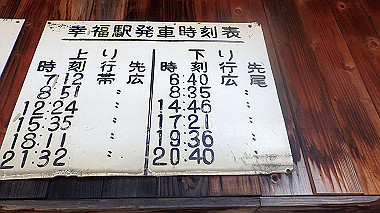 幸福駅発車時刻表
上り 下り
時刻 行先 時刻 行先
7:12 帯広 6:40 広尾
8:51 〃 〃 8:35 〃 〃
12:24 〃 〃 14:46 〃 〃
15:35 〃 〃 17:21 〃 〃
18:11 〃 〃 19:36 〃 〃
21:32 〃 〃 20:40 〃 〃